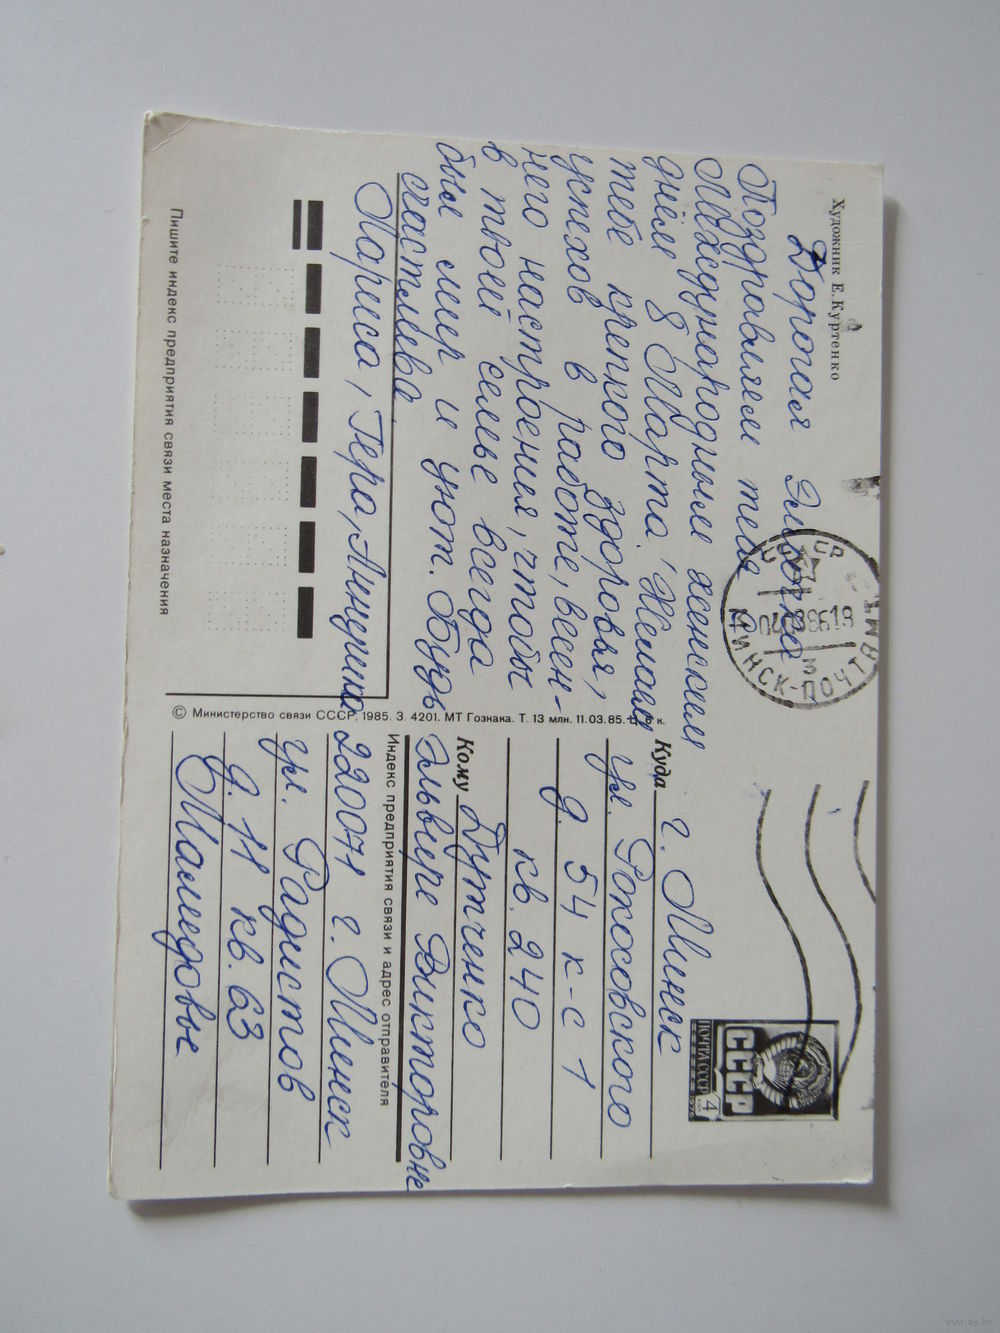 Художник Е.Куртенко
Дорогая Элвочка
Поздравляем тебя
Международным женским
днём 8 Марта! Желаем
тебе крепкого здоровья,
успехов в работе, весен-
него настроения, чтобы
в твоей семье всегда
был мир и уют. Будь
счастлива.
Лариса, Гера, Аннушка
Пишите индекс предприятия связи места назначения
© Министерство связи СССР, 1985. З. 4201. МТ Гознака. Т. 13 млн. 11.03.85. Ц. 6 к.
СССР
МИНСК-ПОЧТАМТ
ПОЧТА СССР 4
СССР
Куда г. Минск
ул. Рокоссовского
д. 54 к-с 1
кв. 240
Кому Дутченко
Эльвире Викторовне
Индекс предприятия связи и адрес отправителя
220071 г. Минск
ул. Радистов
д. 11 кв. 63
Мамедовы
www.ay.by